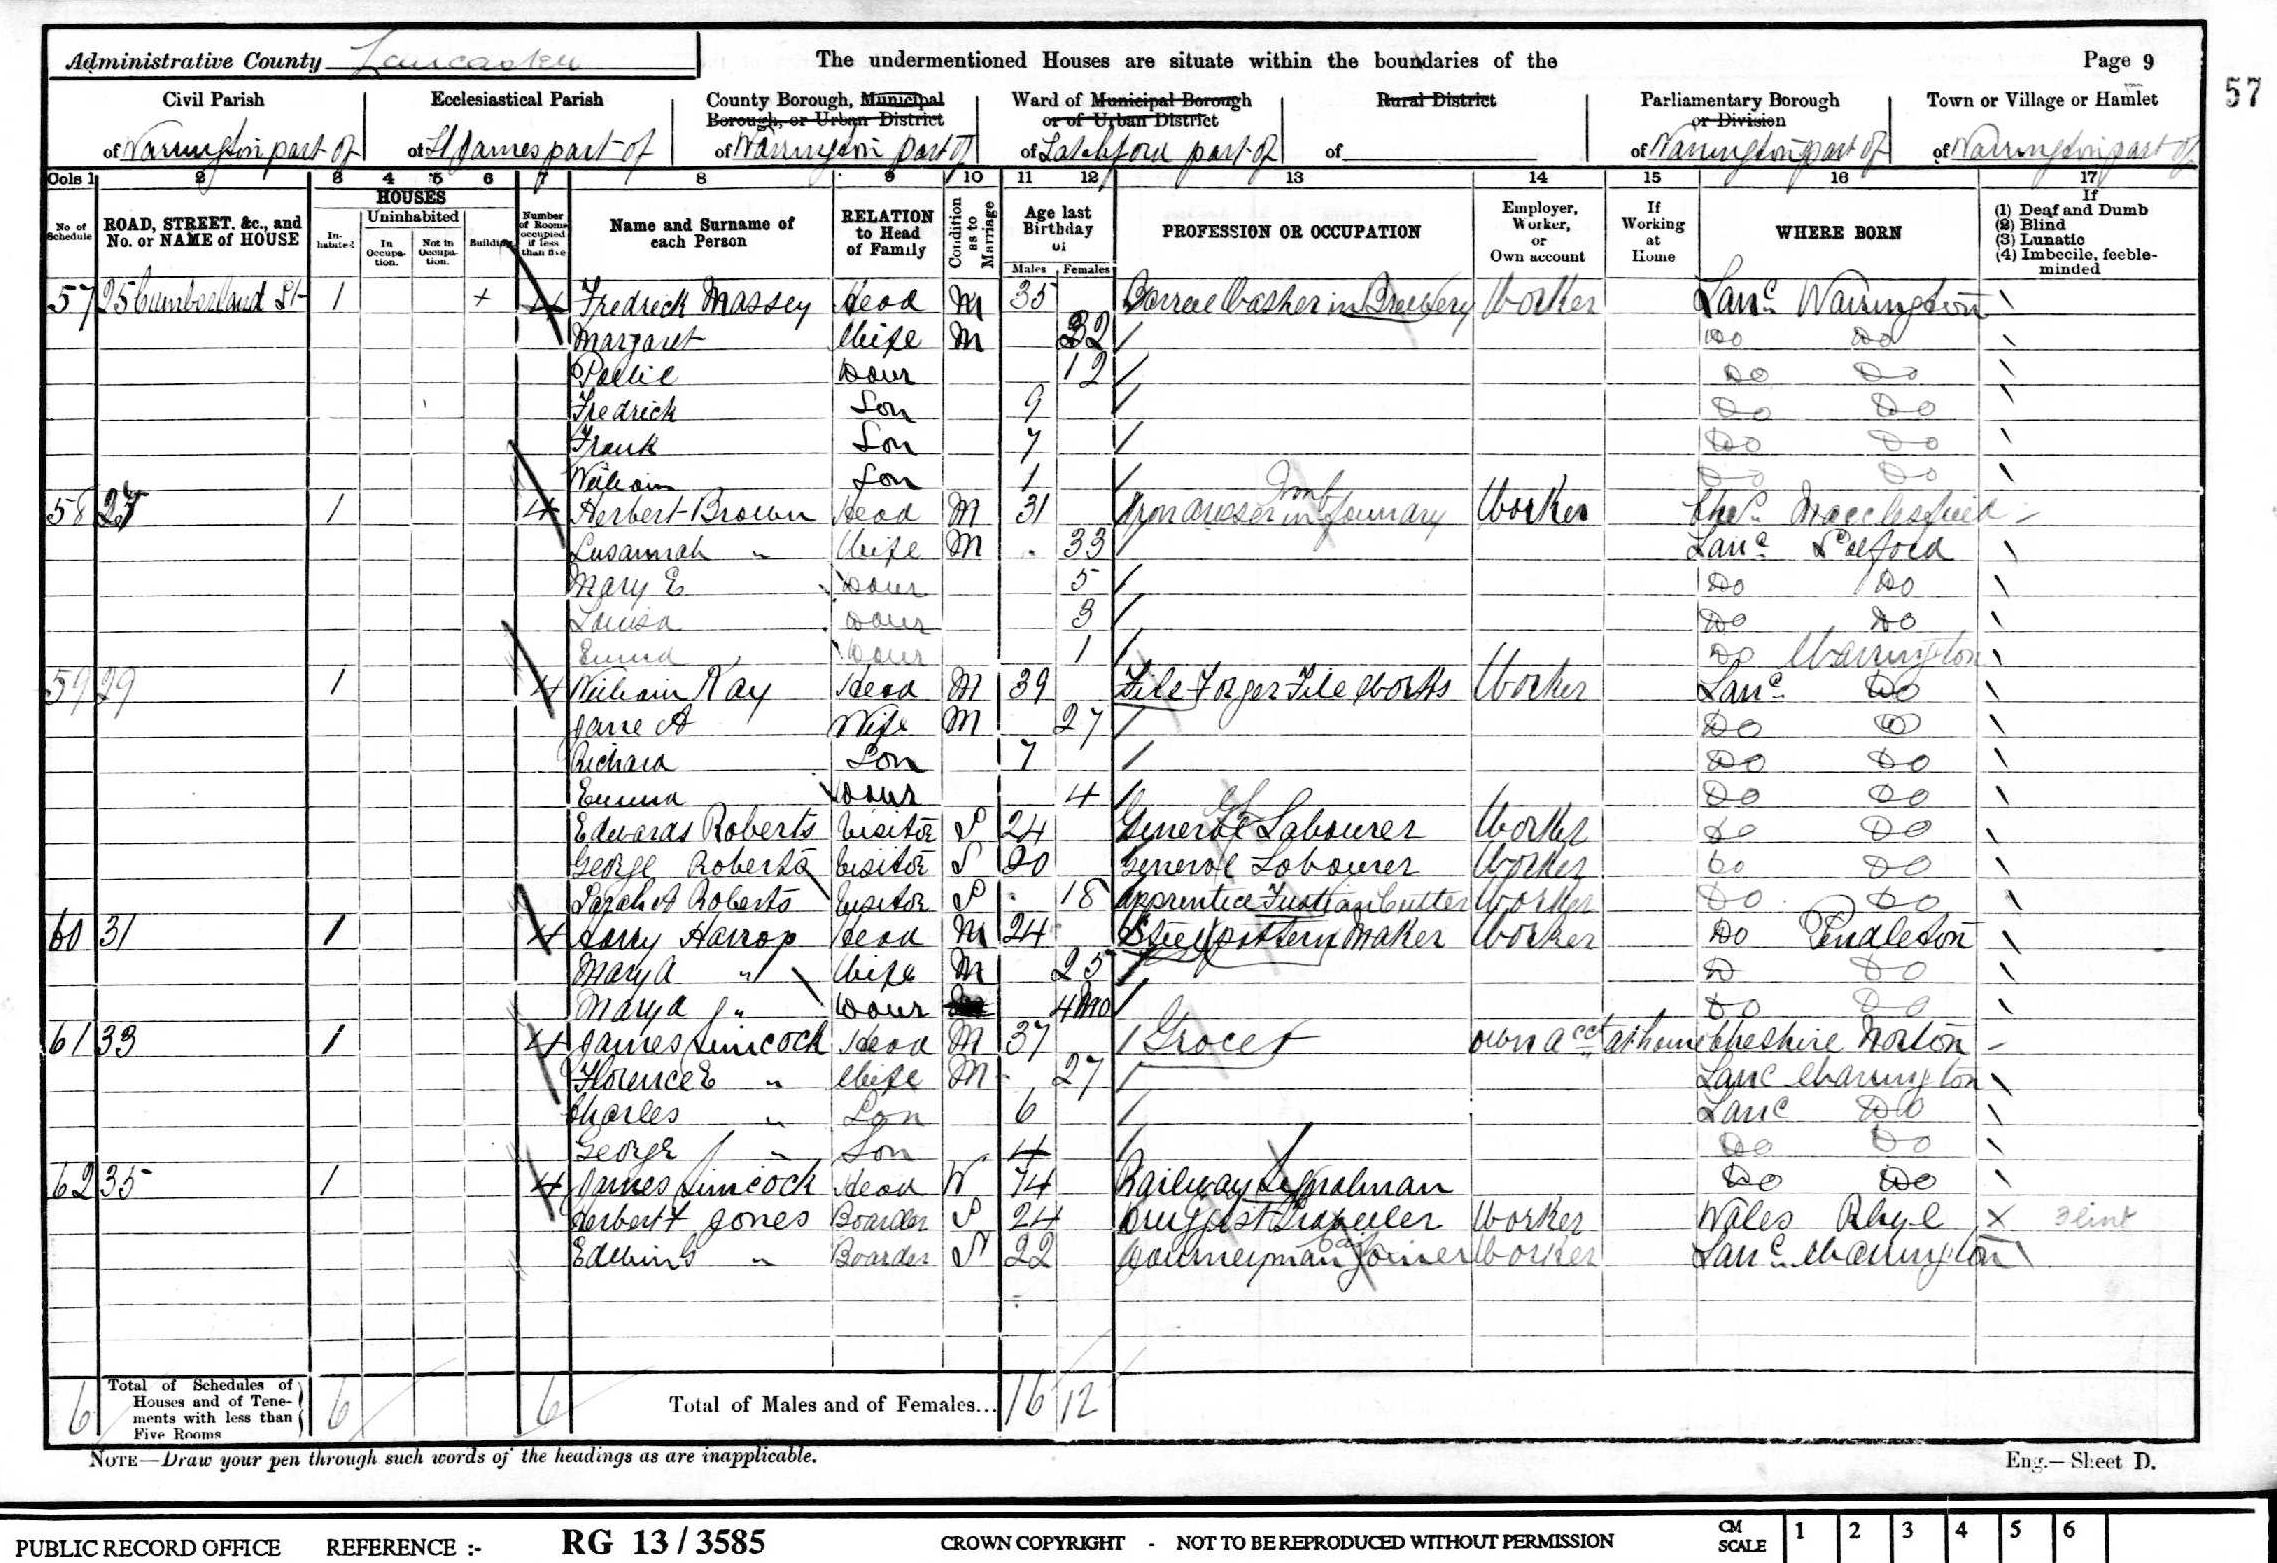 Administrative County Lancaster
The undermentioned Houses are situate within the boundaries of the
Page 9
57
Civil Parish
of Warrington part of
Ecclesiastical Parish
of St James part of
County Borough, Municipal
Borough, or Urban District
of Warrington part of
Ward of Municipal Borough
or of Urban District
of Latchford part of
Rural District
of
Parliamentary Borough
or Division
of Warrington part of
Town or Village or Hamlet
of Warrington part of
Cols 1 2 3 4 5 6 7 8 9 10 11 12 13 14 15 16 17
No of Schedule
ROAD, STREET, &c., and No. or NAME of HOUSE
HOUSES
Inhabited
Uninhabited
In Occupation.
Not in Occupation.
Building
Number of Rooms occupied if less than five
Name and Surname of each Person
RELATION to Head of Family
Condition as to Marriage
Age last Birthday of
Males Females
PROFESSION OR OCCUPATION
Employer, Worker, or Own account
If Working at Home
WHERE BORN
If
(1) Deaf and Dumb
(2) Blind
(3) Lunatic
(4) Imbecile, feeble-minded
57 25 Cumberland St 1 + 4 Fredrick Massey Head M 35 Barrel Washer in Brewery Worker Lanc Warrington
Margaret Wife M 32 Do Do
Pollie Daur 12 Do Do
Fredrick Son 9 Do Do
Frank Son 7 Do Do
William Son 1 Do Do
58 27 1 4 Herbert Brown Head M 31 Iron dresser in foundry Worker Ches Macclesfield
Susannah " Wife M 33 Lanc Salford
Mary E Daur 5 Do Do
Louisa Daur 3 Do Do
Emma Daur 1 Do Warrington
59 29 1 4 William Kay Head M 39 File Forger File Works Worker Lanc Do
Jane A Wife M 27 Do Do
Richard Son 7 Do Do
Emma Daur 4 Do Do
Edward Roberts Visitor S 24 General Labourer Worker Do Do
George Roberts Visitor S 20 General Labourer Worker Do Do
Sarah A Roberts Visitor S 18 Apprentice Fustian Cutter Worker Do Do
60 31 1 4 Harry Harrop Head M 24 Steel pattern Maker Worker Do Pendleton
Mary A " Wife M 25 D Do
Mary A " Daur 4 Mo Do Do
61 33 1 4 James Simcock Head M 37 Grocer own acct at home Cheshire Norton
Florence E " Wife M 27 Lanc Warrington
Charles " Son 6 Lanc Do
George " Son 4 Do Do
62 35 1 4 James Simcock Head W 74 Railway Signalman Do Do
Herbert Jones Boarder S 24 Druggist Traveller Worker Wales Rhyl X Flint
Edwin G " Boarder S 22 Journeyman Joiner Worker Lanc Warrington
6 Total of Schedules of Houses and of Tenements with less than Five Rooms 6 6 Total of Males and of Females... 16 12
NOTE—Draw your pen through such words of the headings as are inapplicable.
Eng.—Sheet D.
PUBLIC RECORD OFFICE REFERENCE :- RG 13 / 3585 CROWN COPYRIGHT - NOT TO BE REPRODUCED WITHOUT PERMISSION CM SCALE 1 2 3 4 5 6